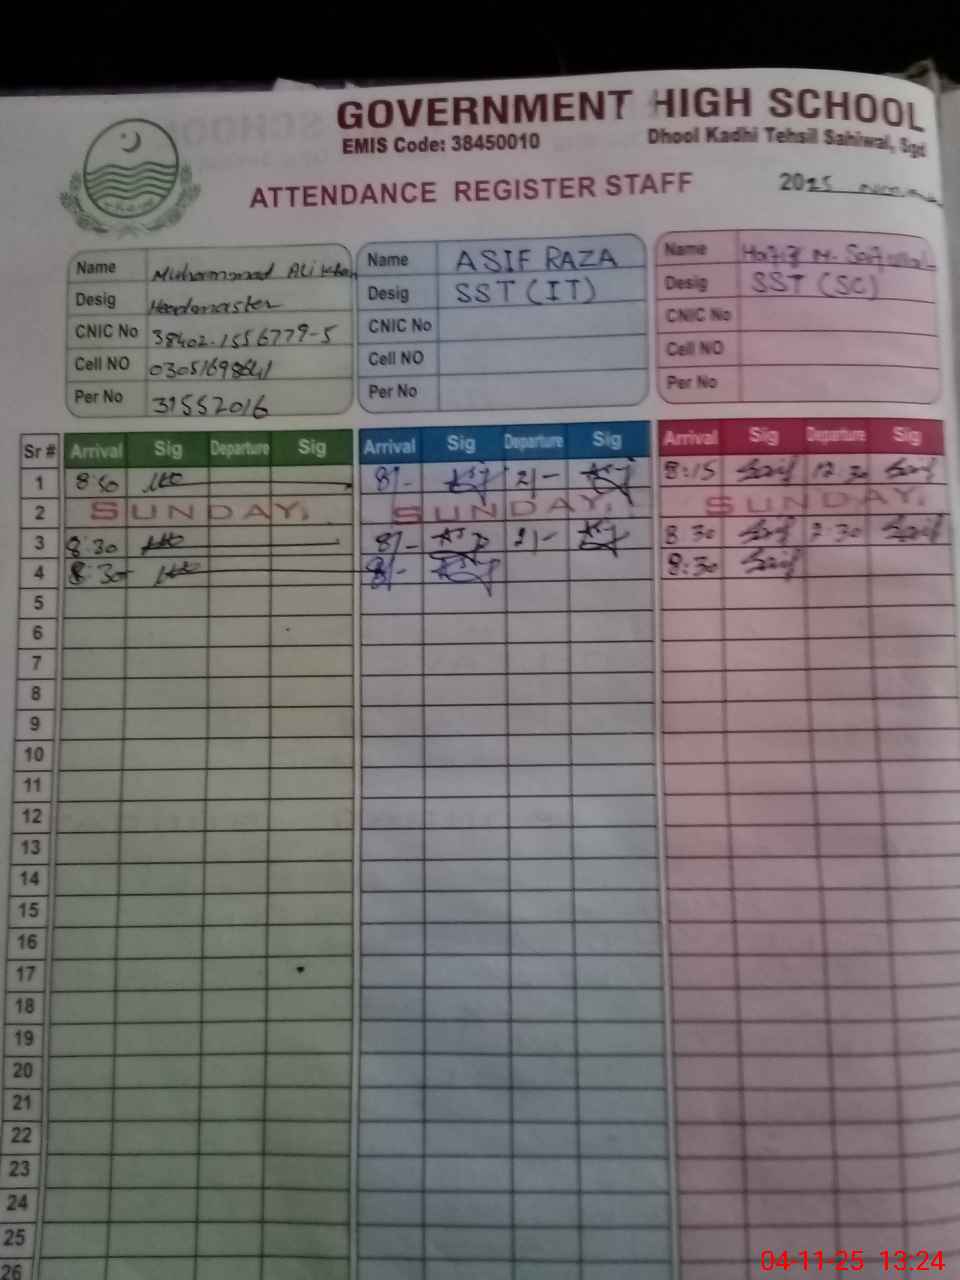 GOVERNMENT HIGH SCHOOL
EMIS Code: 38450010
Dhool Kadhi Tehsil Sahiwal, Sgd
ATTENDANCE REGISTER STAFF
2025
Name Muhammad Ali Khan
Desig Headmaster
CNIC No 38402-1556779-5
Cell NO
Per No 31552016
Name ASIF RAZA
Desig SST (IT)
CNIC No
Cell NO
Per No
Name Hafiz M.
Desig SST (SC)
CNIC No
Cell NO
Per No
Sr # Arrival Sig Departure Sig Arrival Sig Departure Sig Arrival Sig Departure Sig
1 8:30 8/- 2/- 8:15 12 30
2 SUNDAY. SUNDAY. SUNDAY.
3 8:30 8/- 2/- 8 30 2:30
4 8:30 8/- 8:30
5
6
7
8
9
10
11
12
13
14
15
16
17
18
19
20
21
22
23
24
25
26
04-11-25 13:24